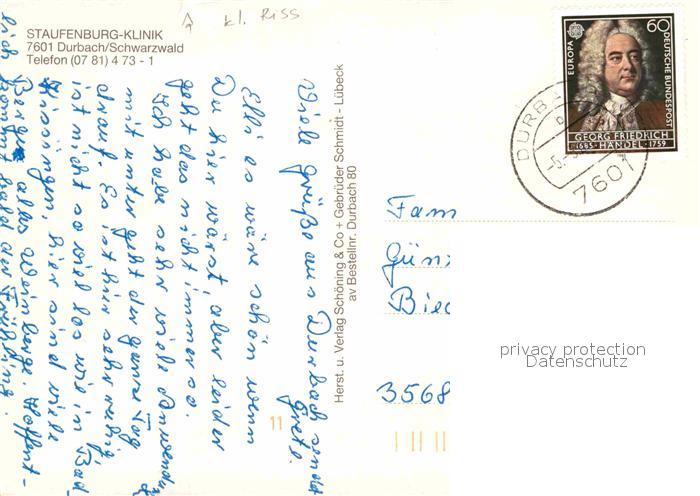 kl. Riss
STAUFENBURG-KLINIK
7601 Durbach/Schwarzwald
Telefon (07 81) 4 73 - 1
Viele Grüße aus Durbach sendet
Grete.
Elli es wäre schön wenn
Du hier wärst, aber leider
geht das nicht immer so.
Ich habe sehr viele Anwendu
mit unter geht der ganze Tag
drauf. Es ist hier sehr ruhig,
ist nicht so viel los wie in Bad
Kissingen, hier sind viele
Berge alles Weinberge. Hoffent-
lich kommt bald der Frühling.
Herst. u. Verlag Schöning & Co + Gebrüder Schmidt - Lübeck
av Bestellnr. Durbach 80
11
EUROPA
60
DEUTSCHE BUNDESPOST
GEORG FRIEDRICH
1685 · HÄNDEL · 1759
DURB
7601
Fam
Gün
Bied
3568
privacy protection
Datenschutz